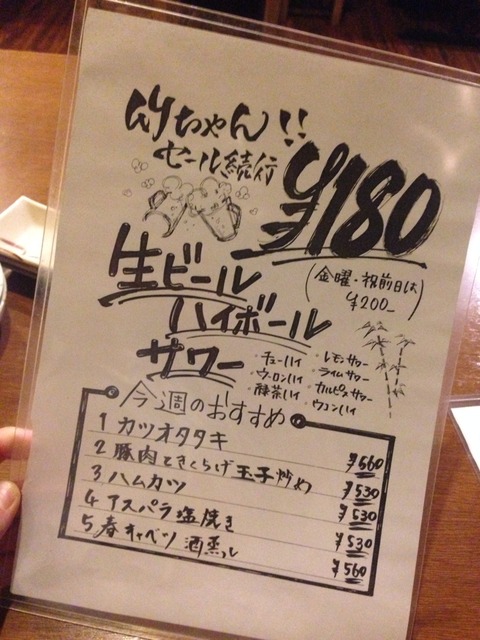 竹ちゃん!!
セール続行
¥180
(金曜・祝前日は
¥200-)
生ビール
ハイボール
サワー
・チューハイ ・レモンサワー
・ウーロンハイ ・ライムサワー
・緑茶ハイ ・カルピスサワー
・ウコンハイ
今週のおすすめ
1 カツオタタキ ¥560
2 豚肉ときくらげ玉子炒め ¥530
3 ハムカツ ¥530
4 アスパラ塩焼き ¥530
5 春キャベツ 酒蒸し ¥560